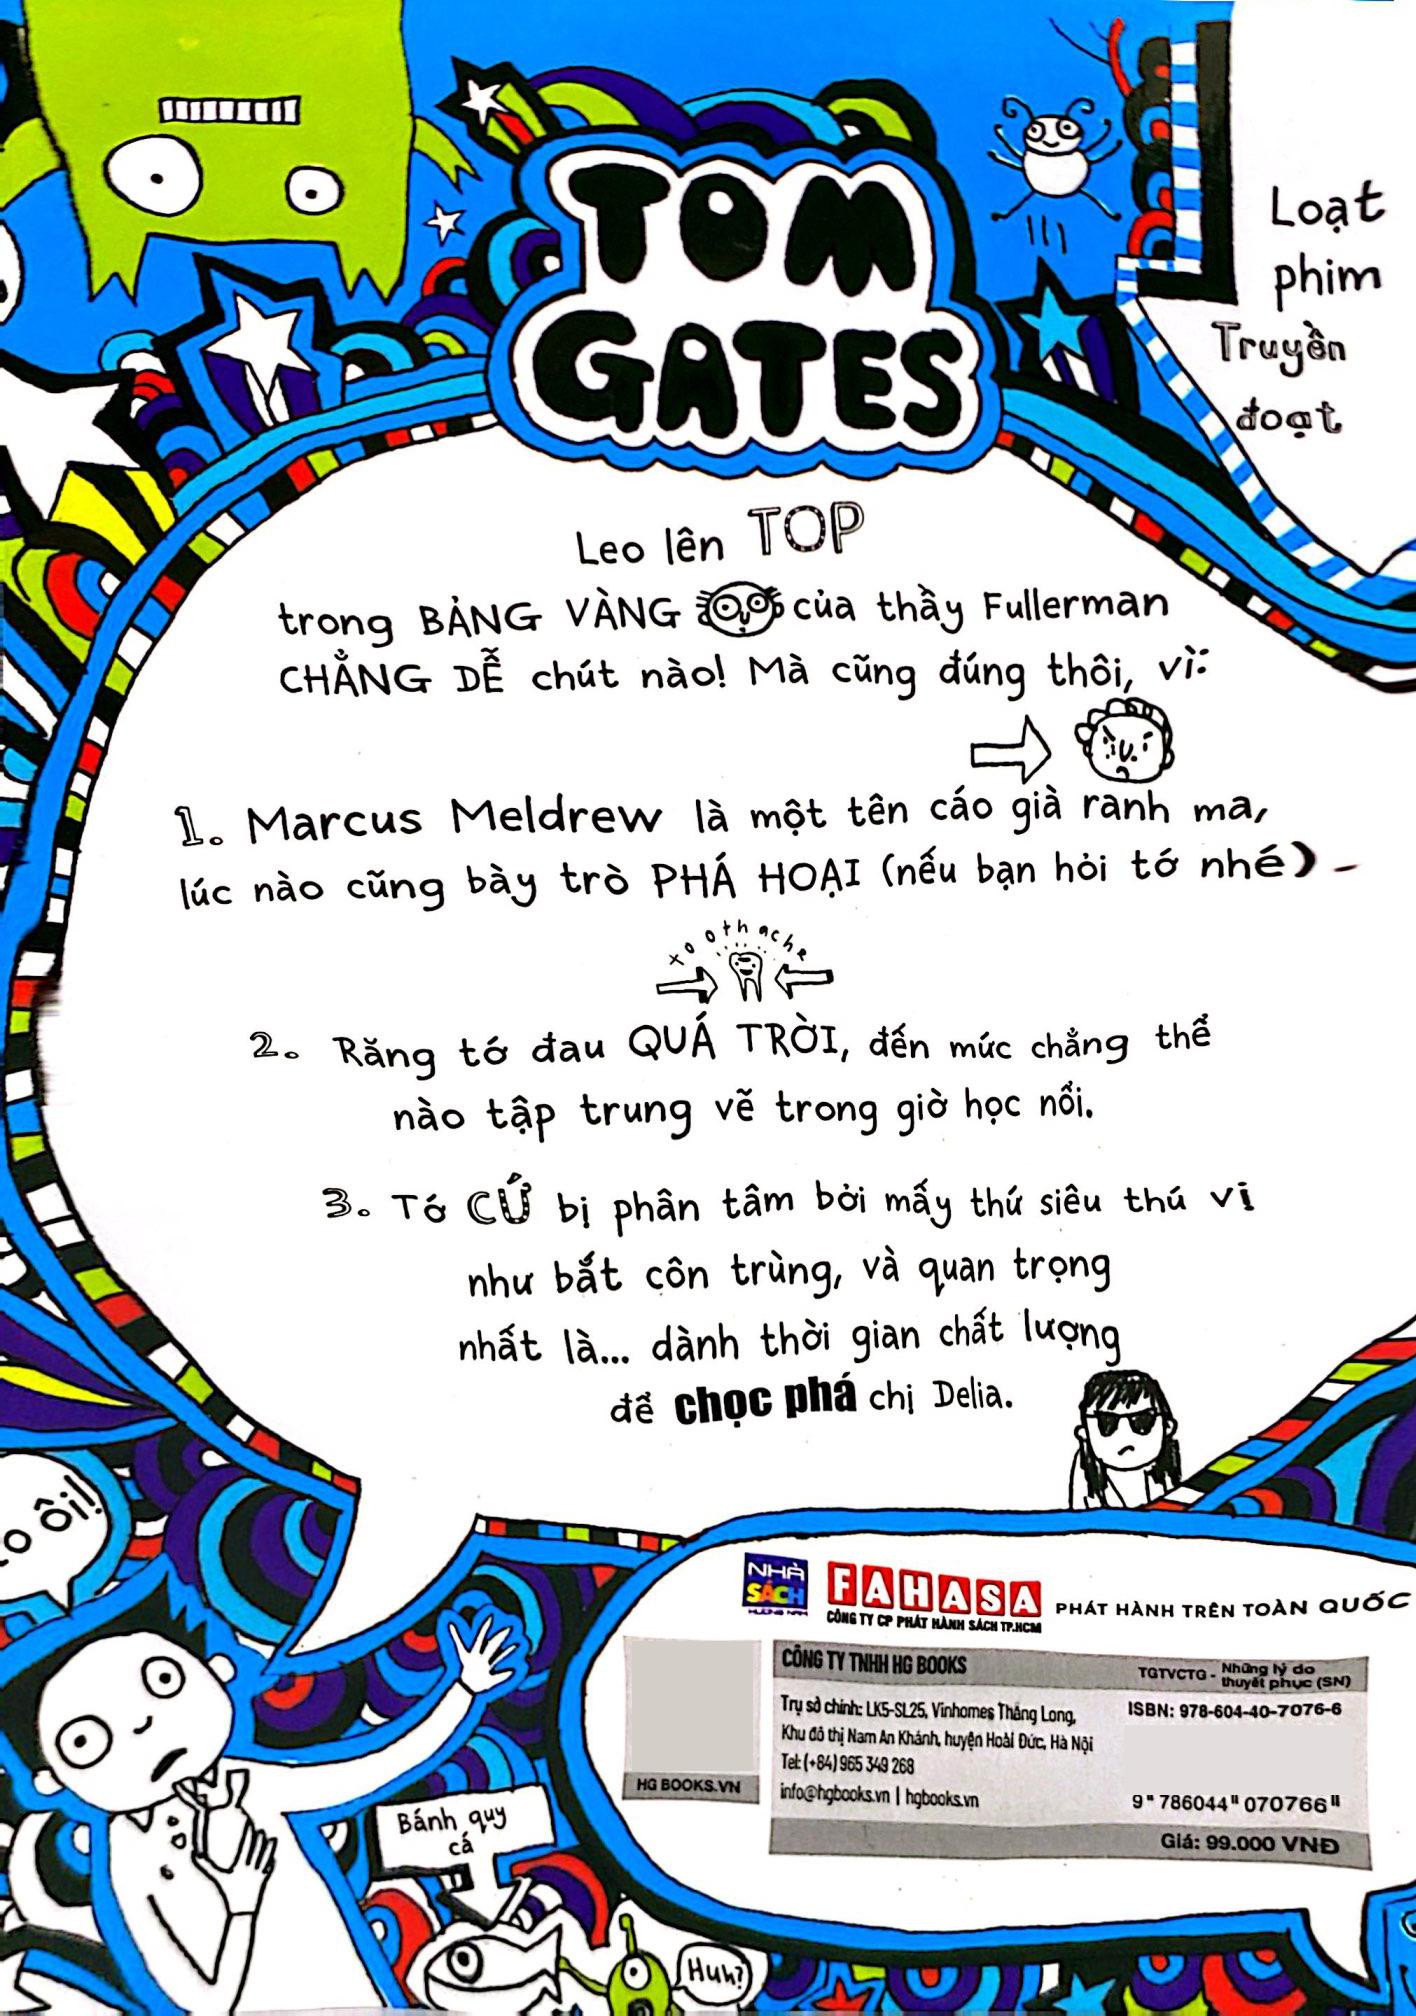 TOM
GATES
Loạt
phim
Truyền
đoạt
Leo lên TOP
trong BẢNG VÀNG của thầy Fullerman
CHẲNG DỄ chút nào! Mà cũng đúng thôi, vì:
1. Marcus Meldrew là một tên cáo già ranh ma,
lúc nào cũng bày trò PHÁ HOẠI (nếu bạn hỏi tớ nhé) -
xoothache
2. Răng tớ đau QUÁ TRỜI, đến mức chẳng thể
nào tập trung vẽ trong giờ học nổi.
3. Tớ CỨ bị phân tâm bởi mấy thứ siêu thú vị
như bắt côn trùng, và quan trọng
nhất là... dành thời gian chất lượng
để chọc phá chị Delia.
ôi!!
NHÀ
SÁCH
FAHASA
CÔNG TY CP PHÁT HÀNH SÁCH TP.HCM
PHÁT HÀNH TRÊN TOÀN QUỐC
HG BOOKS.VN
CÔNG TY TNHH HG BOOKS
Trụ sở chính: LK5-SL25, Vinhomes Thăng Long,
Khu đô thị Nam An Khánh, huyện Hoài Đức, Hà Nội
Tel: (+84) 965 349 268
info@hgbooks.vn | hgbooks.vn
TGTVCTG - Những lý do
thuyết phục (SN)
ISBN: 978-604-40-7076-6
9" 786044" 070766"
Giá: 99.000 VNĐ
Bánh quy
cá
Huh?